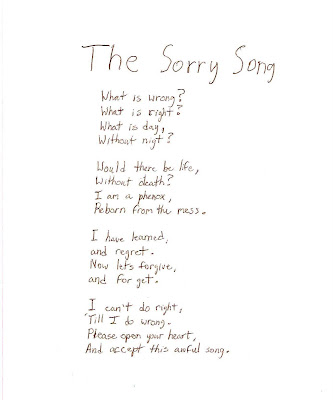 The Sorry Song
What is wrong?
What is right?
What is day,
Without nigt?
Would there be life,
Without death?
I am a phenox,
Reborn from the mess.
I have learned,
and regret.
Now lets forgive,
and for get.
I can't do right,
'Till I do wrong.
Please open your heart,
And accept this awful song.